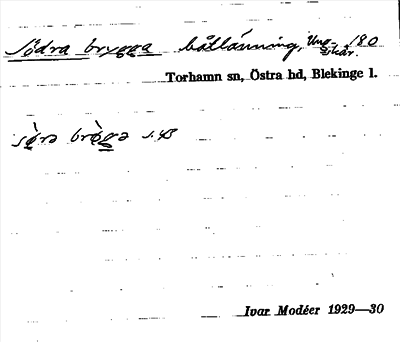 Södra brygga båtlänning, Ung- 180
skär.
Torhamn sn, Östra hd, Blekinge l.
sø̀rə brø̀gə s. 43
Ivar Modéer 1929—30